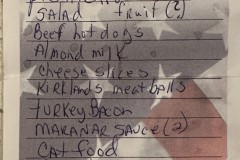 Salad fruit (?)
Beef hot dogs
Almond milk
Cheese slices
Kirklands meatballs
Turkey Bacon
MARANAR SAUCE (2)
CAT food